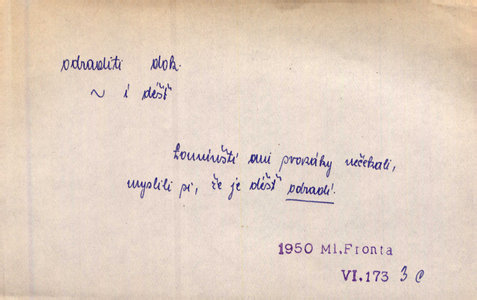 odraditi dok.
~ i déšť
ani provázky nečekali,
myslili si, že je déšť odradí.
1950 Ml.Fronta
VI.173 3